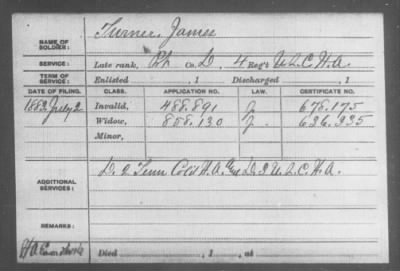 NAME OF SOLDIER: Turner, James
SERVICE: Late rank, Pvt Co. D, 4 Reg't U.S.C.H.A.
TERM OF SERVICE: Enlisted , 1 Discharged , 1
DATE OF FILING. CLASS. APPLICATION NO. LAW. CERTIFICATE NO.
1883 July 2 Invalid, 488.891 678.175
Widow, 858.130 636.335
Minor,
ADDITIONAL SERVICES: D. 2 Tenn Cold H.A. D. 3 U.S.C.H.A.
REMARKS:
Died , 1 , at